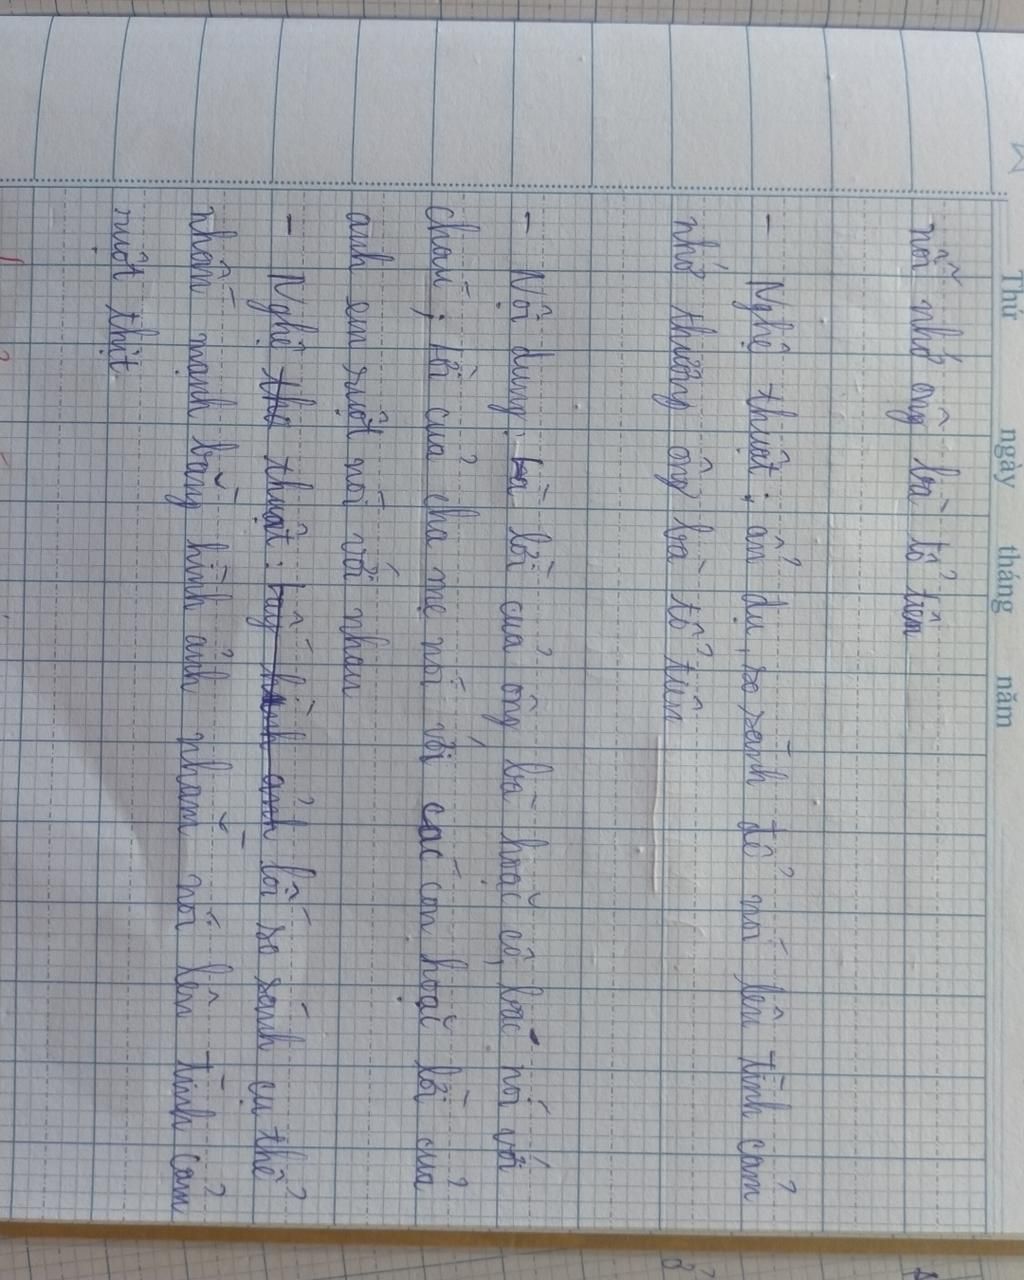 Thứ ngày tháng năm
nỗi nhớ ông bà tổ tiên
- Nghệ thuật: ẩn dụ, so sánh để nói lên tình cảm
nhớ thương ông bà tổ tiên
- Nội dung: là lời của ông bà hoặc cô, bác nói với
cháu; lời của cha mẹ nói với các con hoặc lời của
anh em ruột nói với nhau
- Nghệ thuật: lối so sánh cụ thể
nhấn mạnh bằng hình ảnh nói lên tình cảm
ruột thịt.